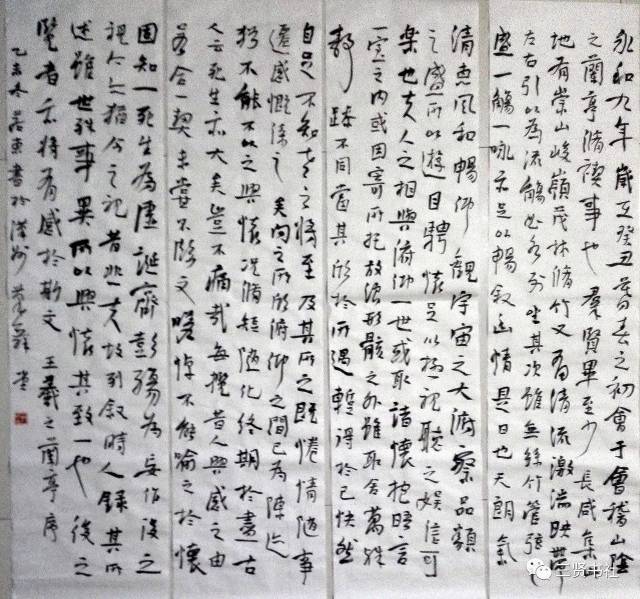 永和九年歲在癸丑暮春之初會于會稽山陰
之蘭亭脩禊事也羣賢畢至少長咸集此
地有崇山峻嶺茂林脩竹又有清流激湍映帶
左右引以為流觴曲水列坐其次雖無絲竹管弦之
盛一觴一詠亦足以暢敘幽情是日也天朗氣
清惠風和暢仰觀宇宙之大俯察品類
之盛所以遊目騁懷足以極視聽之娛信可
樂也夫人之相與俯仰一世或取諸懷抱晤言
一室之內或因寄所託放浪形骸之外雖取舍萬殊
靜躁不同當其欣於所遇暫得於己快然
自足不知老之將至及其所之既惓情隨事
遷感慨係之矣向之所欣俯仰之間已為陳迹
猶不能不以之興懷況脩短隨化終期於盡古
人云死生亦大矣豈不痛哉每攬昔人興感之由
若合一契未嘗不臨文嗟悼不能喻之於懷
固知一死生為虛誕齊彭殤為妄作後之
視今亦猶今之視昔悲夫故列敘時人錄其所
述雖世殊事異所以興懷其致一也後之
覽者亦將有感於斯文 王羲之蘭亭序
乙未冬 書於 堂
三贤书社